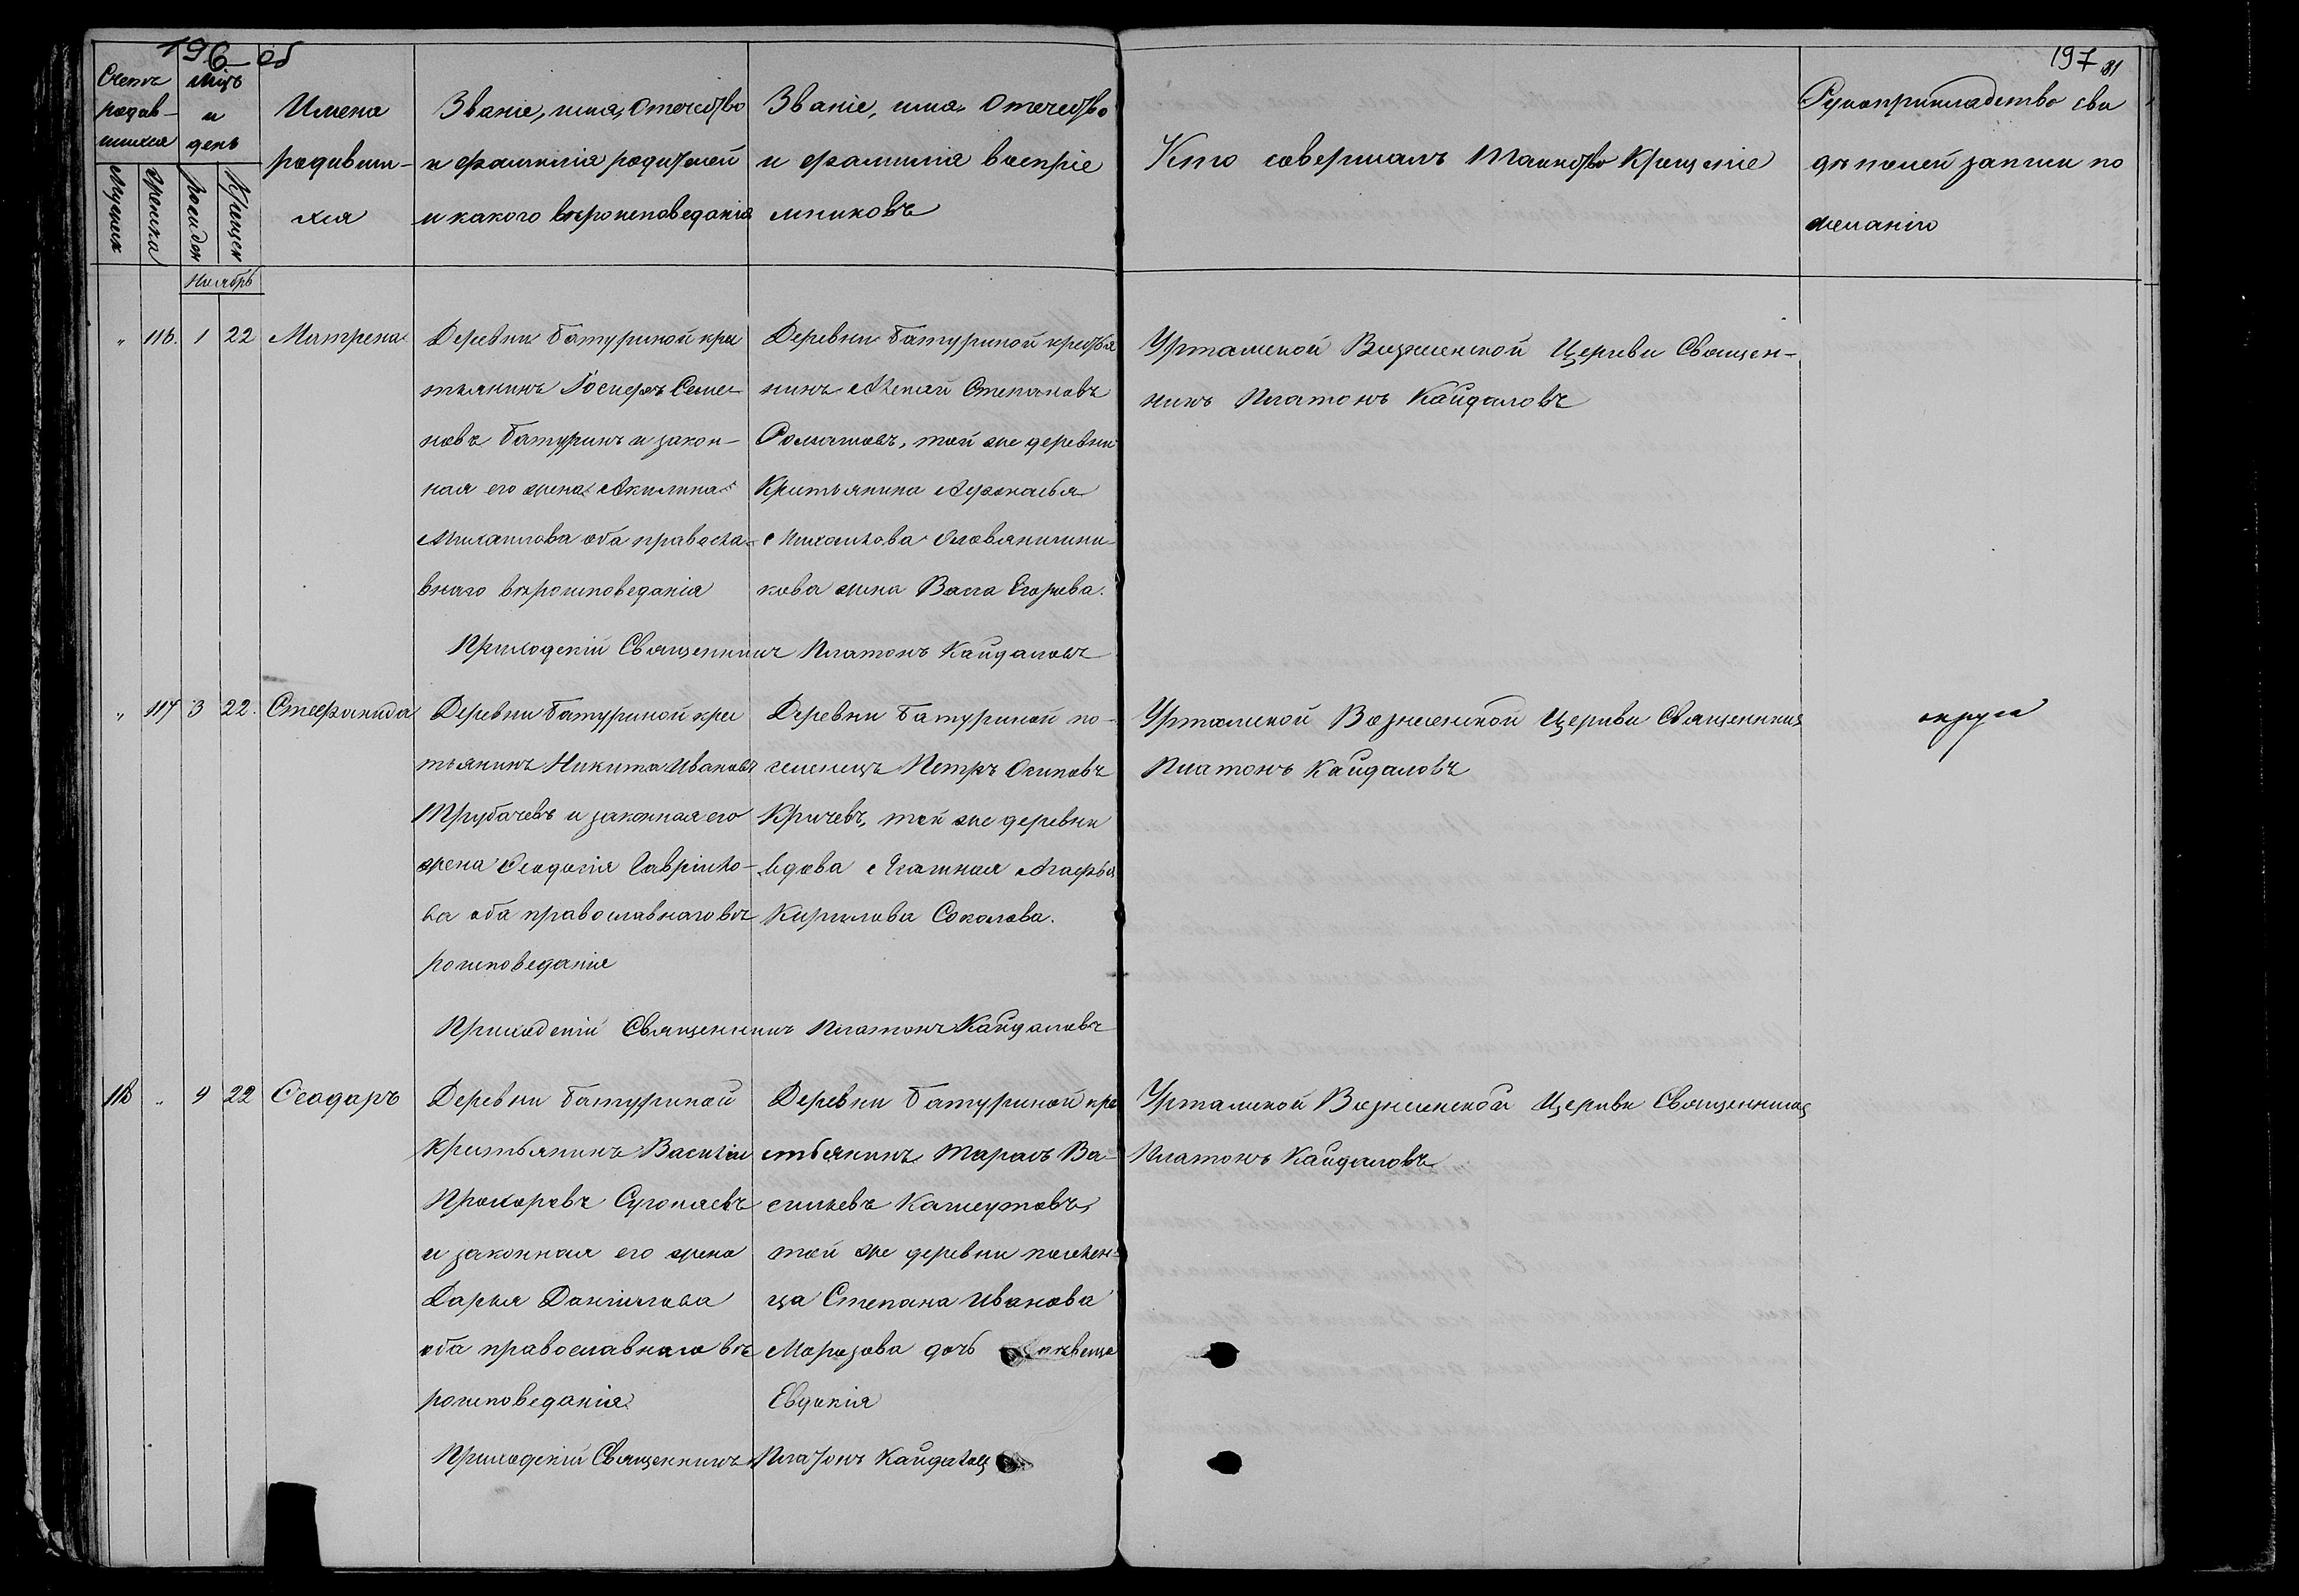 196 об
197
81
Счетъ родив-шихся
мцъ и день
Имена родивши-хся
Званіе, имя, отечество и фамилія родителей и какого вѣроисповеданія
Званіе, имя, отечество и фамилія воспріе мниковъ
Кто совершалъ Таинство Крещеніе
Рукоприкладство сви дѣтелей записи по желанію
Мужеска
Женска
Рожден
Крещен
Ноябрь
" 116. 1 22 Матрена
Деревни Батуриной кре
стьянинъ Іосифъ Семе-
новъ Батуринъ и закон-
ная его жена Акилина
Михаилова оба правосла-
внаго вѣроисповеданія
Деревни Батуриной крестья
нинъ Алексѣй Степановъ
той же деревни
Крестьянина Афонасья
Михайлова
кова жена Васса Егорьева.
Уртамской Вознесенской Церкви Священ-
никъ Платонъ Кайдаловъ
Приходскій Священникъ Платонъ Кайдаловъ
" 117 3 22. Стефанида
Деревни Батуриной кре
стьянинъ Никита Ивановъ
Трубачевъ и законная его
жена Феодосія Гавріило-
ва оба православнаго вѣ
роисповеданія
Деревни Батуриной по-
селенецъ Петръ Осиповъ
Кричевъ, той же деревни
вдова Агафья
Кирилова Соколова.
Уртамской Вознесенской Церкви Священникъ
Платонъ Кайдаловъ
округа
Приходскій Священникъ Платонъ Кайдаловъ
118 " 9 22 Феодоръ
Деревни Батуриной
Крестьянинъ Василій
Прохоровъ
и законная его жена
Дарья Даніилова
оба православнаго вѣ
роисповеданія
Деревни Батуриной кре
стьянинъ Тарасъ Ва-
сильевъ
той же деревни поселен-
ца Степана Иванова
Морозова дочь
Евдокія
Уртамской Вознесенской Церкви Священникъ
Платонъ Кайдаловъ
Приходскій Священникъ Платонъ Кайдаловъ